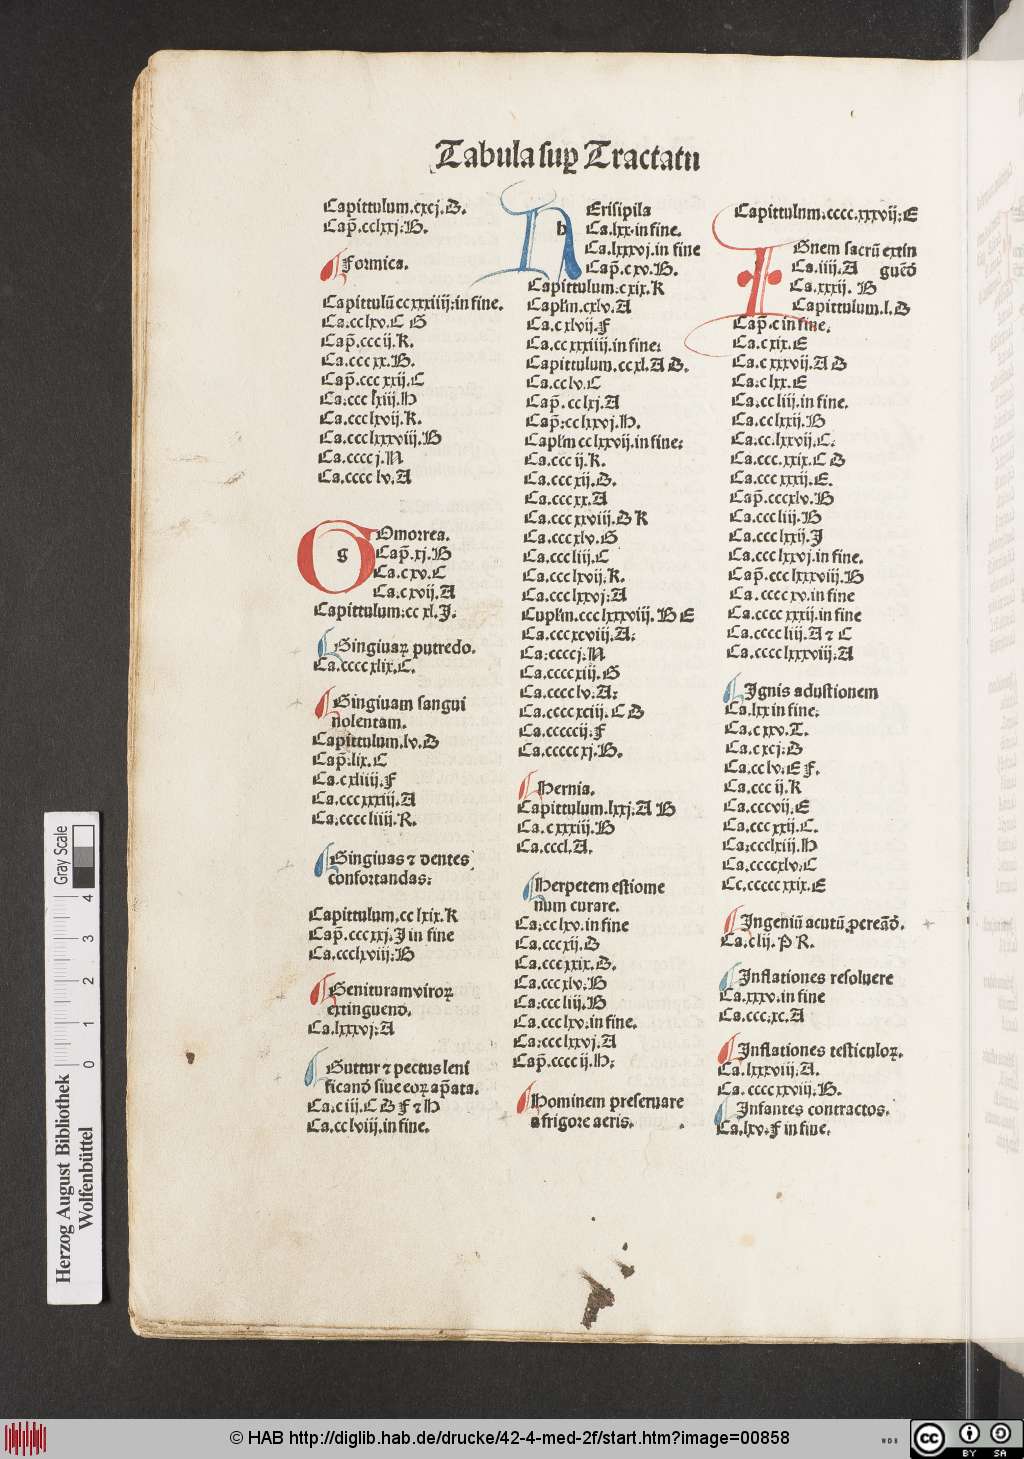 Tabula sup Tractatu
Capittulum.cxcj.B.
Cap̄.cclxxj:H.
Formica.
Capittulū ccxxxiiij:in fine.
Ca:cclxv.C G
Cap̄.cccij.K.
Ca.cccxx.H.
Cap̄.cccxxij.C
Ca:ccclxiij.H
Ca.ccclxvij.K.
Ca.ccclxxxviij.H
Ca.ccccj.N
Ca.cccclv.A
g
Omorrea.
Cap̄.xj.H
Ca.cxv.C
Ca.cxvij.A
Capittulum:ccxl.J:
Gingiuaꝝ putredo.
Ca.ccccxlix.C.
Gingiuam sangui
nolentam.
Capittulum.lv.B
Cap̄.lix.C
Ca.cxliiij.F
Ca.cccxxxiij.A
Ca.ccccliiij.R.
Gingiuas ⁊ dentes
confortandas:
Capittulum.cclxix.K
Cap̄.cccxxj.J in fine
Ca.ccclxviij:H
Genituram viroꝝ
extinguend̄.
Ca.lxxxvj:A
Guttur ⁊ pectus leni
ficand̄ siue eoꝝ ap̄ata.
Ca:ciij.C B F ⁊ H
Ca.cclviij.in fine.
h
Erisipila
Ca.lxx.in fine.
Ca.lxxxvj.in fine
Cap̄.cxv.H.
Capittulum:cxix.K
Caplm.cxlv.A
Ca.cxlvij.F
Ca.ccxxxiiij.in fine:
Capittulum.ccxl.A B.
Ca.cclv.C
Cap̄.cclxj.A
Cap̄:cclxxvj.H.
Caplm cclxxvij.in fine:
Ca.cccij.K.
Ca.cccxij.B.
Ca.cccxx.A
Ca.cccxxviij.B K
Ca.cccxlv.G
Ca.cccliij.C
Ca.ccclxvij.K.
Ca.ccclxxvj:A
Cuplm.ccclxxxviij.H E
Ca.cccxcviij.A:
Ca:ccccj:N
Ca.ccccxiij.G
Ca.cccclv.A:
Ca.ccccxciij.C B
Ca.cccccij:F
Ca.cccccxj.H.
Hernia.
Capittulum.lxxj:A H
Ca.cxxxiij.H
Ca.cccl.A.
Herpetem estiome
num curare.
Ca:cclxv.in fine
Ca.cccxij.B
Ca.cccxxix.B.
Ca.cccxlv:H
Ca:cccliij.H
Ca.ccclxv:in fine.
Ca:ccclxxvj.A
Cap̄.ccccij.H:
Hominem preseruare
a frigore aeris.
Capittulnm:ccccxxxvij:E
Gnem sacrū extin
Ca.iiij.A guend̄
Ca.xxxij. H
Capittulum.l.B
Cap̄.c in fine.
Ca.cxix.E
Ca.cxxxvij.A B
Ca:clxx.E
Ca.ccliij.in fine.
Ca.cclxxij.H
Ca:cc.lxxvij.C:
Ca.ccc.xxix.C B
Ca.cccxxxij.E.
Cap̄.cccxlv.H
Ca.cccliij.H
Ca.ccclxxij.J
Ca.ccclxxvj.in fine.
Cap̄.ccclxxxviij.H
Ca.ccccxv.in fine
Ca.ccccxxxij.in fine
Ca.ccccliij.A ⁊ C
Ca.cccclxxxviij:A
Jgnis adustionem
Ca.lxx in fine:
Ca.cxxv.T.
Ca.cxcj:B
Ca.cclv:E F.
Ca.cccij.K
Ca.cccvij.E
Ca.cccxxij.C.
Ca:ccclxiij.H
Ca,ccccxlv:C
Cc.cccccxxix.E
Jngeniū acutū ꝓcreād̄.
Ca.clij. P R.
Jnflationes resoluere
Ca.xxxv.in fine
Ca.ccc:xc.A
Jnflationes testiculoꝝ.
Ca.lxxxviij.A.
Ca.ccccxxviij:H.
Jnfantes contractos.
Ca.lxv.F in fine.
Gray Scale
4
3
2
1
0
Herzog August Bibliothek
Wolfenbüttel
© HAB http://diglib.hab.de/drucke/42-4-med-2f/start.htm?image=00858
WDB
cc BY SA